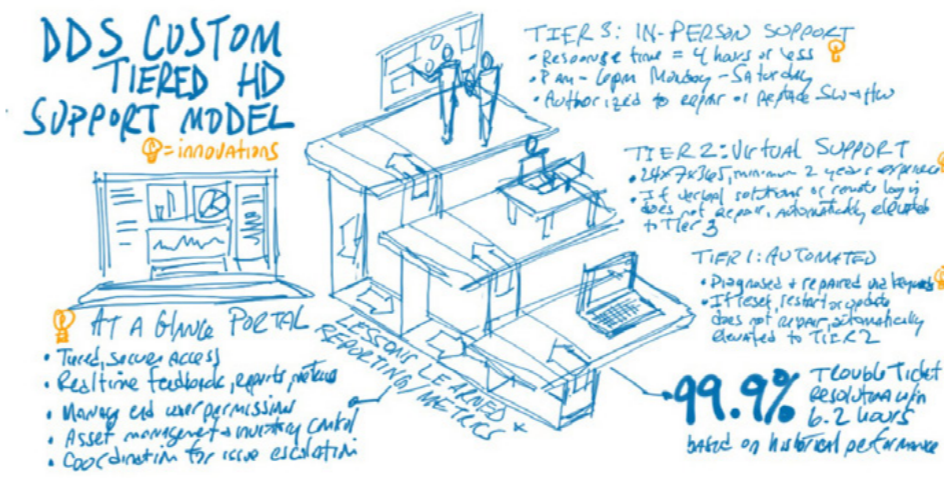 DDS CUSTOM
TIERED HD
SUPPORT MODEL
= innovations
AT A GLANCE PORTAL
• Tiered, secure Access
• Realtime feedback, reports, metrics
• Manage end user permissions
• Asset management + inventory control
• Coordination for issue escalation
LESSONS LEARNED +
REPORTING/METRICS
TIER 3: IN-PERSON SUPPORT
• Response time = 4 hours or less
• 6pm Monday - Saturday
• Authorized to repair or replace SW + HW
TIER 2: Virtual SUPPORT
• 24x7x365, minimum 2 years experience
• If verbal solutions or remote log in
does not repair, automatically elevated
to Tier 3
TIER 1: AUTOMATED
• Diagnosed + repaired via
• If reset, restart or update
does not repair, automatically
elevated to TIER 2
99.9% Trouble Ticket
Resolution w/in
6.2 hours
based on historical performance